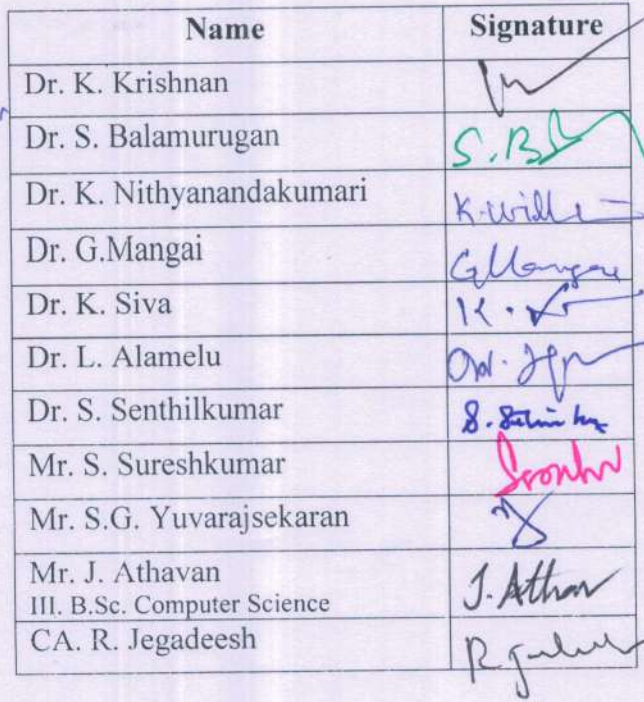 Name Signature
Dr. K. Krishnan
Dr. S. Balamurugan S.B
Dr. K. Nithyanandakumari
Dr. G.Mangai GMangai
Dr. K. Siva K.
Dr. L. Alamelu
Dr. S. Senthilkumar
Mr. S. Sureshkumar
Mr. S.G. Yuvarajsekaran
Mr. J. Athavan J. Athav
III. B.Sc. Computer Science
CA. R. Jegadeesh